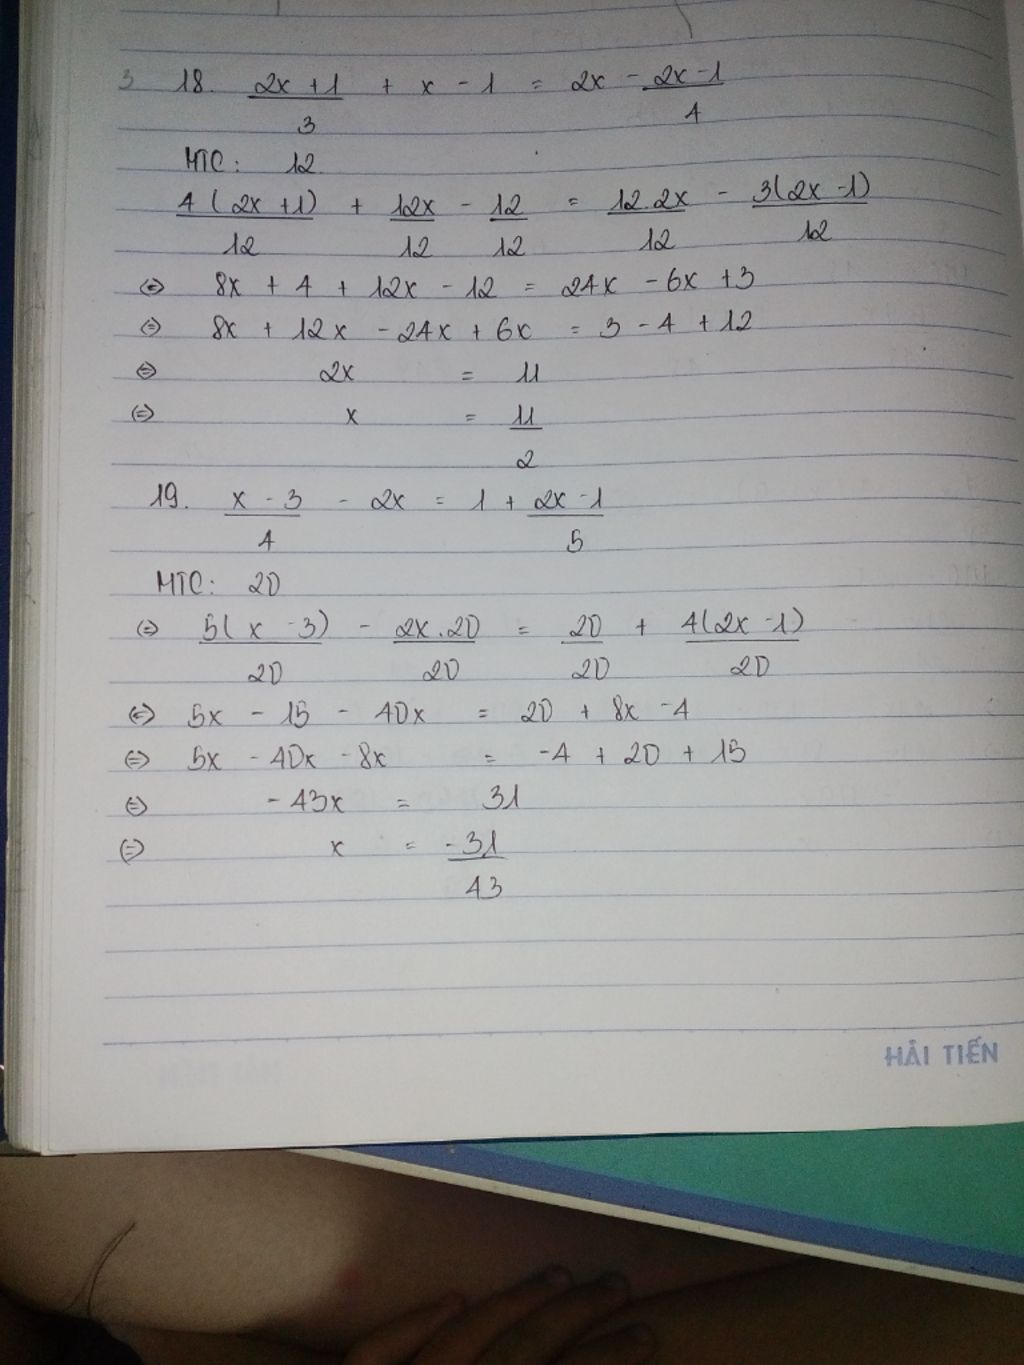 3 18. 2x + 1 / 3 + x - 1 = 2x - 2x - 1 / 4
MTC: 12
4(2x + 1) / 12 + 12x / 12 - 12 / 12 = 12.2x / 12 - 3(2x - 1) / 12
⇔ 8x + 4 + 12x - 12 = 24x - 6x + 3
⇔ 8x + 12x - 24x + 6x = 3 - 4 + 12
⇔ 2x = 11
⇔ x = 11 / 2
19. x - 3 / 4 - 2x = 1 + 2x - 1 / 5
MTC: 20
⇔ 5(x - 3) / 20 - 2x.20 / 20 = 20 / 20 + 4(2x - 1) / 20
⇔ 5x - 15 - 40x = 20 + 8x - 4
⇔ 5x - 40x - 8x = -4 + 20 + 15
⇔ -43x = 31
⇔ x = -31 / 43
HẢI TIẾN